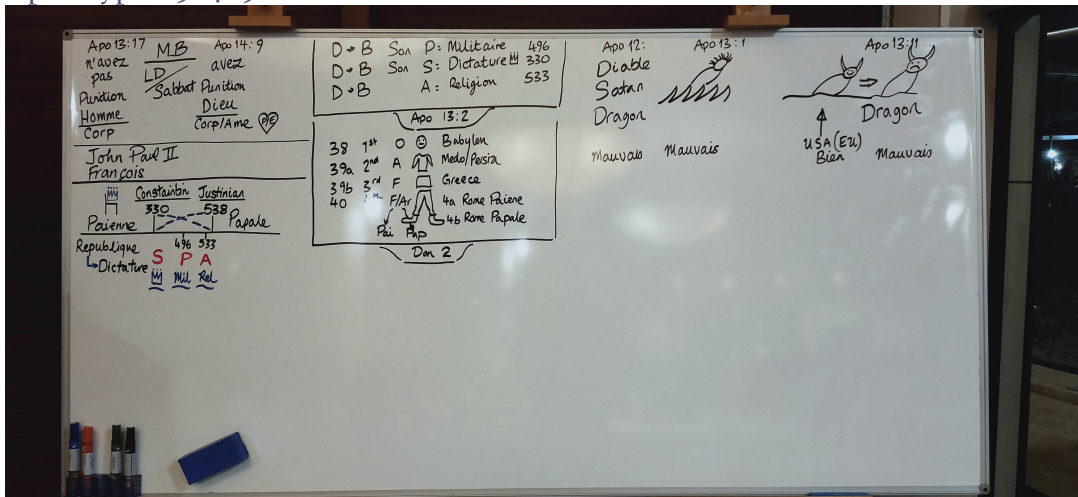 Apo 13:17 MB Apo 14:9
n'avez pas LD avez
Sabbat
Punition Punition
Homme Dieu
Corp Corp/Ame P/E
John Paul II
François
Constaintin Justinian
330 538
Paienne Papale
496 533
Republique
Dictature S P A
Mil Rel
D B Son P: Militaire 496
D B Son S: Dictature 330
D B A: Religion 533
Apo 13:2
38 1st O Babylon
39a 2nd A Medo/Persia
39b 3rd F Greece
40 4th F/Ar 4a Rome Paiene
4b Rome Papale
Pai Pap
Dan 2
Apo 12:
Diable
Satan
Dragon
Mauvais
Apo 13:1
Mauvais
Apo 13:11
Dragon
USA (EU)
Bien Mauvais